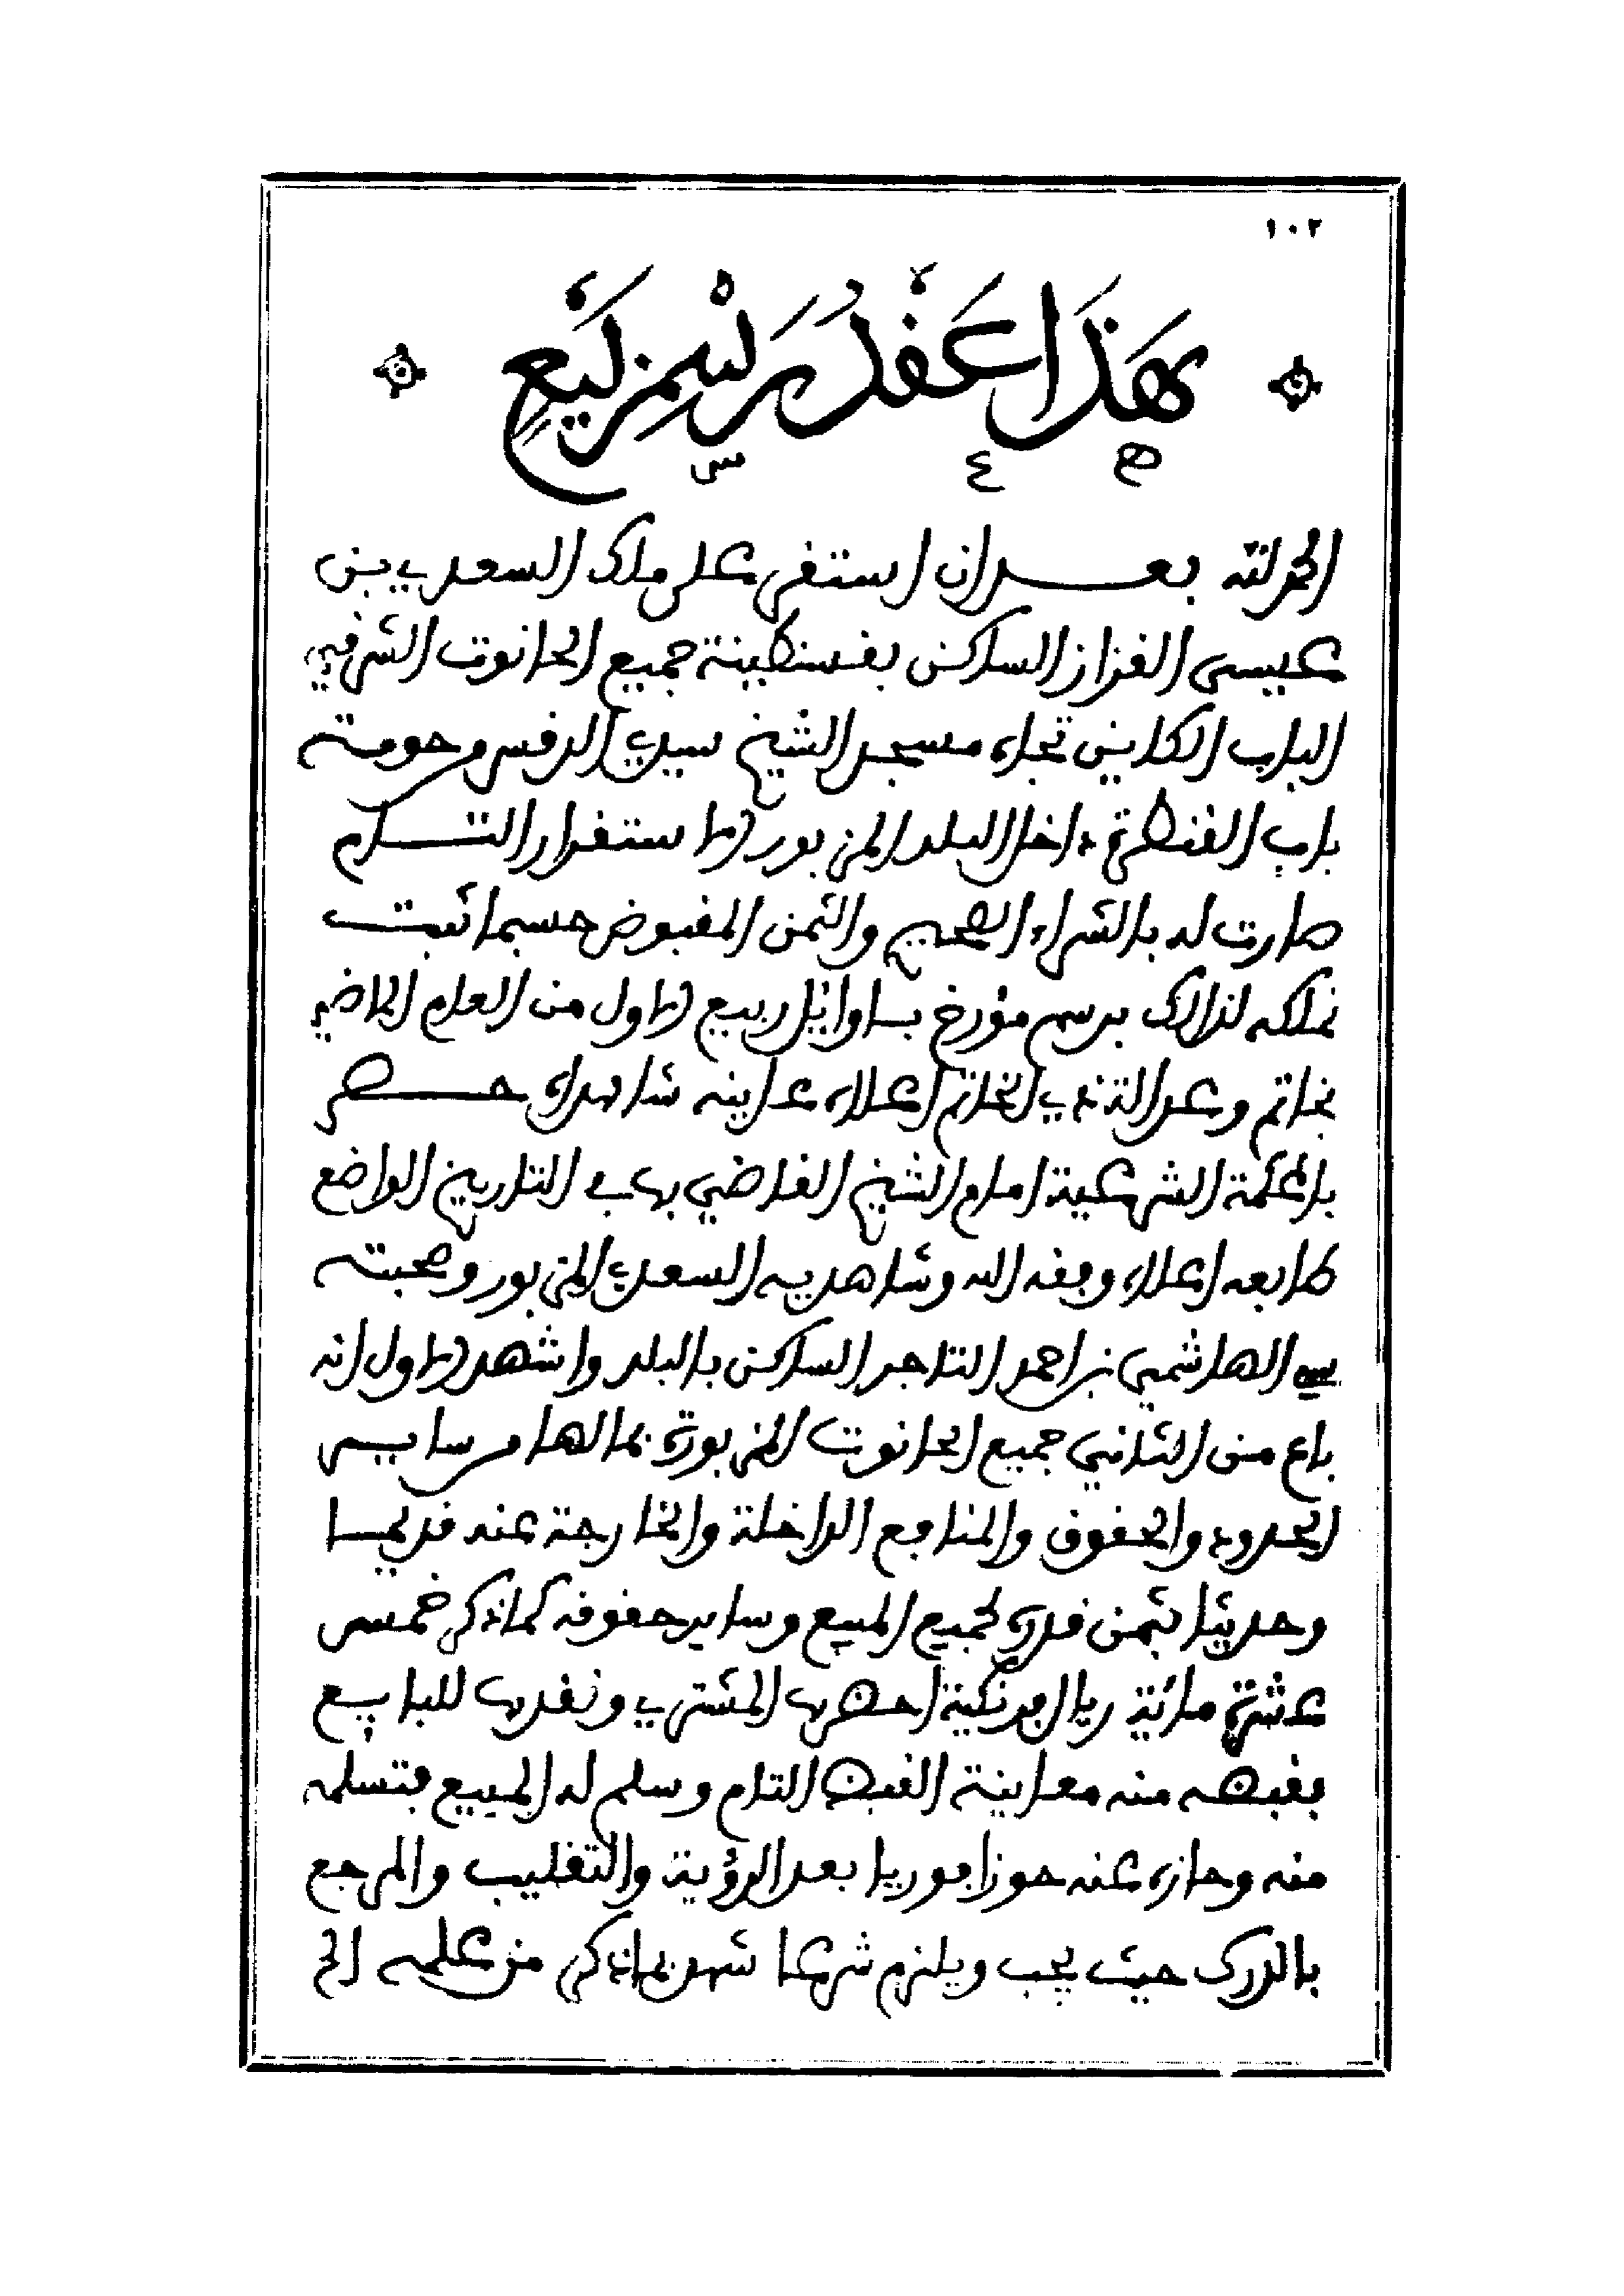 ١٠٢
هَذَا عَقْدُ رَسْمِ بَيْعٍ
ه ع س
الحمد لله بعد ان استقر على ملك السعدي بن
عيسى القزاز الساكن بقسنطينة جميع الحانوت الشرقي
الباب الكاين تجاه مسجد الشيخ سيدي الدقس من حومة
باب القنطرة داخل البلد المزبور الاستقرار التام
صارت له بالشراء الصحيح والثمن المقبوض حسبما ثبت
تملكه لذالك برسم مؤرخ باوايل ربيع الاول من العام الماضي
بخاتم وعد التذي الخاتم اعلاه عاينه شاهداه حضر
بالمحكمة الشرعية امام الشيخ القاضي بها في التاريخ الواضع
طابعه اعلاه وفقه الله وشاهديه السعدي المزبور وصحبته
سي الهاشمي بن احمد التاجر الساكن بالبلد واشهد الاول انه
باع من الثاني جميع الحانوت المزبورة بما لها من ساير
الحدود والحقوق والمنافع الداخلة والخارجة عنه قديما
وحديثا بثمن قدره لجميع المبيع وساير حقوقه كما ذكر خمس
عشرة مائة ريال فرنكية احضرها المشتري ونقدها للبايع
فقبضه منه معاينة القبض التام وسلم له المبيع فتسلمه
منه وحازه عنه حوزا فوريا بعد الرؤية والتقليب والمرجع
بالدرك حيث يجب ويلزم شرعا شهد بما ذكر من علمه الخ